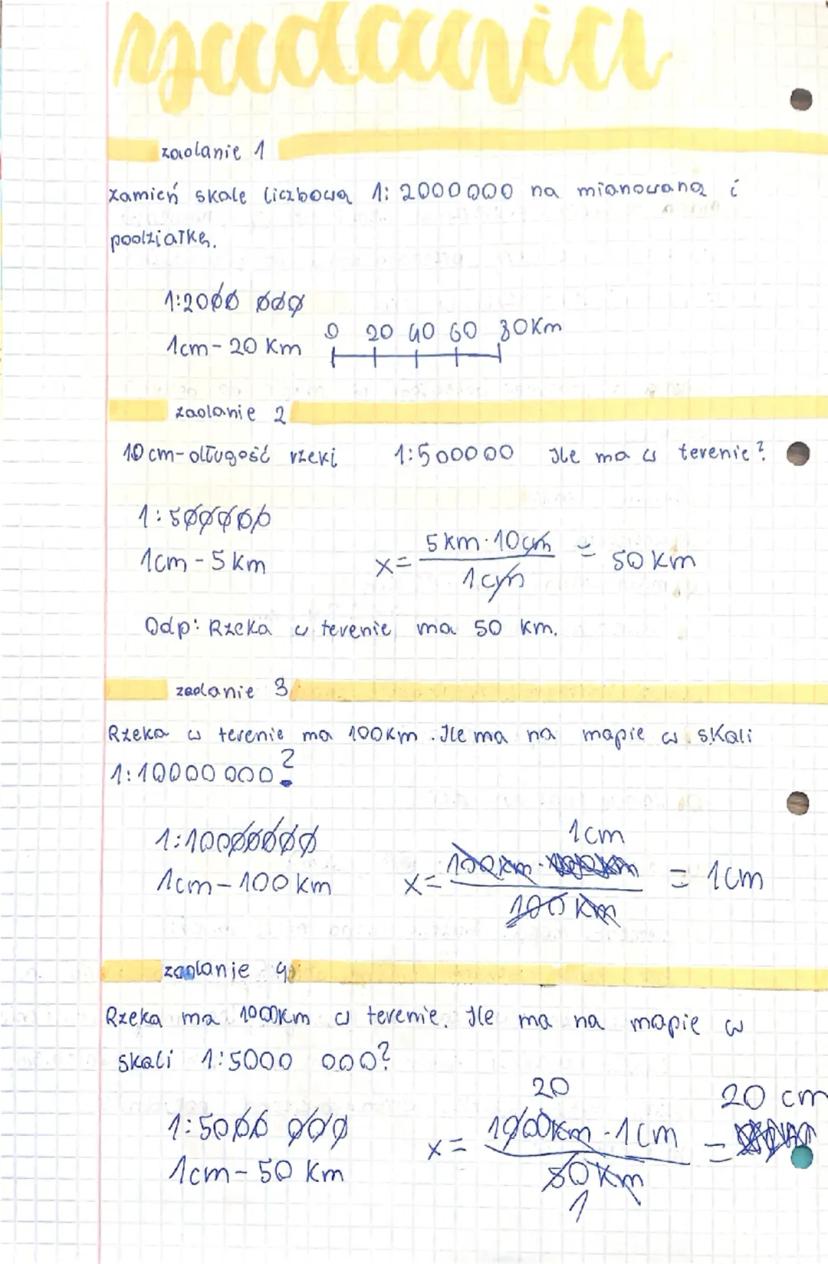 zadania
zadanie 1
Zamień skalę liczbową 1: 2000000 na mianowaną i
podziałkę.
1:2000 000
0 20 40 60 80Km
1cm - 20 Km
zadanie 2
10cm-długość rzeki 1:500000 Ile ma w terenie?
1:500000
1cm - 5 km
x= 5km·10cm / 1cm = 50 km
Odp: Rzeka w terenie ma 50 km.
zadanie 3
Rzeka w terenie ma 100km. Ile ma na mapie w skali
1:10000 000?
1:10000000
1cm
1cm - 100 km
x= 100km · / 100 km = 1cm
zadanie 4
Rzeka ma 1000km w terenie. Ile ma na mapie w
skali 1:5000 000?
20
20 cm
1:5000 000
x= 1000km · 1cm / 50 km =
1cm - 50 km
1